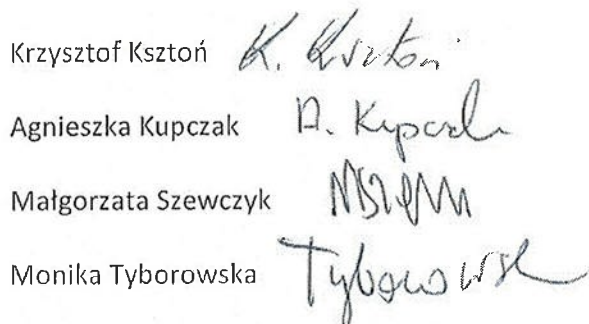 Krzysztof Ksztoń K. Ksztoń
Agnieszka Kupczak A. Kupczak
Małgorzata Szewczyk
Monika Tyborowska Tyborowsk